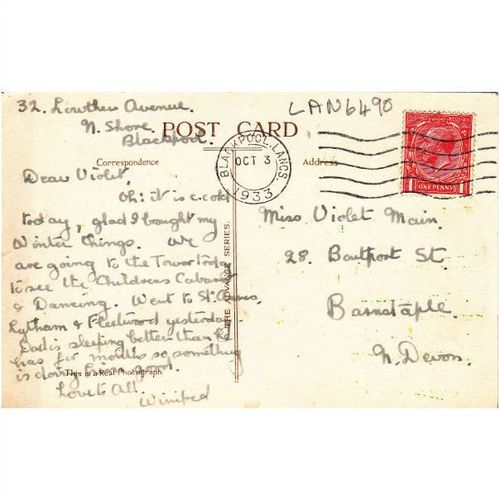 32. Lowther Avenue.
N. Shore.
Blackpool.
LAN6490
POST CARD
Correspondence
Address
BLACKPOOL. LANCS.
OCT 3
1933
ONE PENNY
Dear Violet,
Oh! it is c.cold
today, glad I bought my
Winter things. We
are going to the Tower today
to see the Childrens Cabaret
& Dancing. Went to St. Annes,
Lytham & Fleetwood yesterday.
Dad is sleeping better than he
has for months so something
is doing him good.
Love to All.
Winifred
This is a Real Photograph
THE ADVANCE SERIES.
Miss Violet Main.
28. Boutport St.
Barnstaple.
N. Devon.